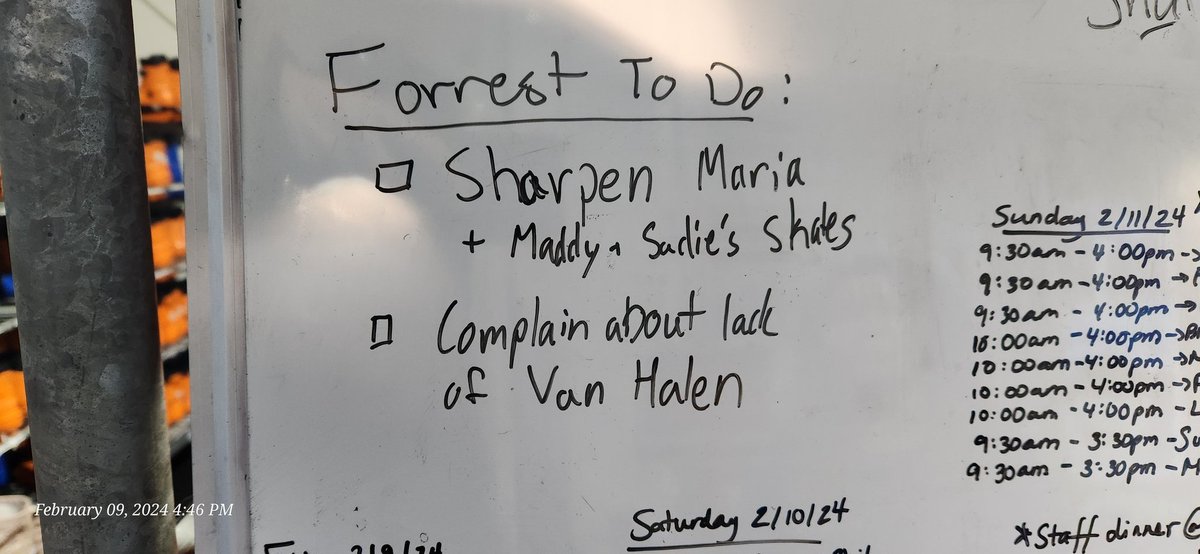 Forrest To Do:
Sharpen Maria
+ Maddy + Sadie's skates
Complain about lack
of Van Halen
Sunday 2/11/24
9:30am - 4:00pm →
9:30am - 4:00pm →
9:30am - 4:00pm →
10:00am - 4:00pm →
10:00am - 4:00pm →
10:00am - 4:00pm →
10:00am - 4:00pm -
9:30am - 3:30pm - Su
9:30am - 3:30pm - M
Saturday 2/10/24
*Staff dinner @
February 09, 2024 4:46 PM